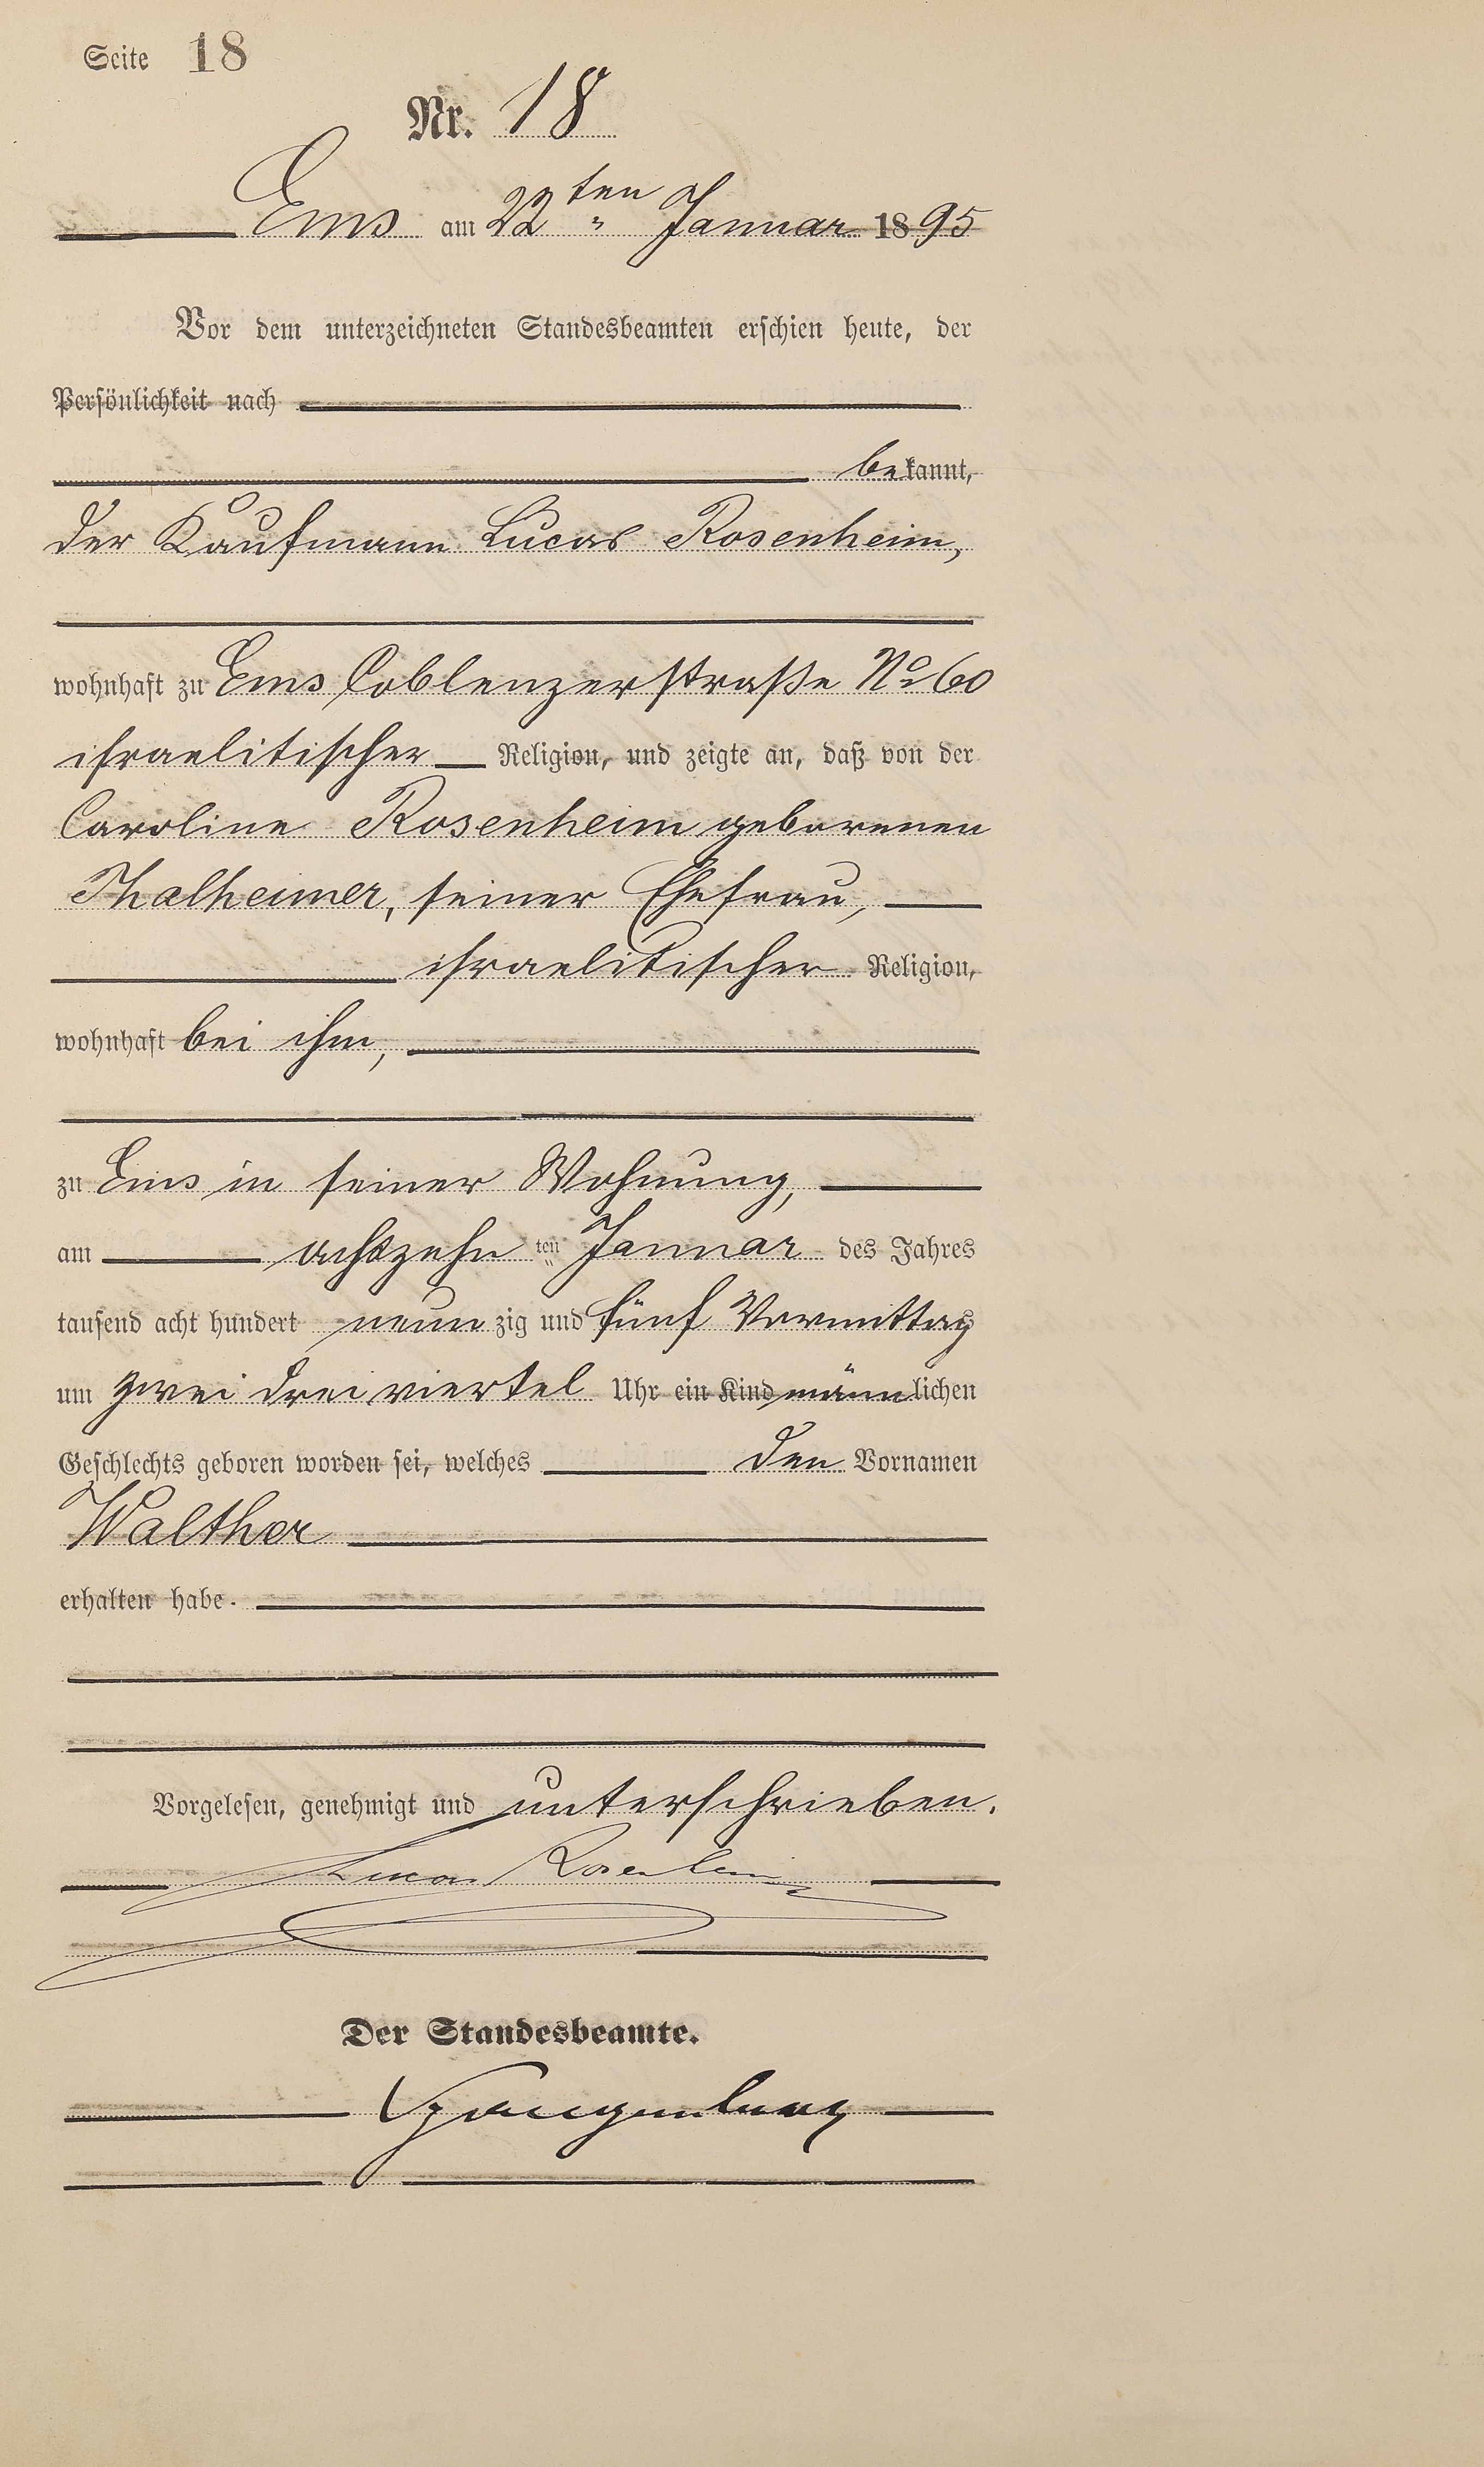 Seite 18
Nr. 18
Ems am 22ten Januar 1895
Vor dem unterzeichneten Standesbeamten erschien heute, der
Persönlichkeit nach
bekannt,
der Kaufmann Lucas Rosenheim,
wohnhaft zu Ems Coblenzerstraße No 60
israelitischer Religion, und zeigte an, daß von der
Caroline Rosenheim geborenen
Thalheimer, seiner Ehefrau,
israelitischer Religion,
wohnhaft bei ihm,
zu Ems in seiner Wohnung,
am achtzehn ten Januar des Jahres
tausend acht hundert neun zig und fünf Vormittag
um zwei drei viertel Uhr ein Kind männlichen
Geschlechts geboren worden sei, welches den Vornamen
Walther
erhalten habe.
Vorgelesen, genehmigt und unterschrieben.
Lucas Rosenheim
Der Standesbeamte.
Spangenberg